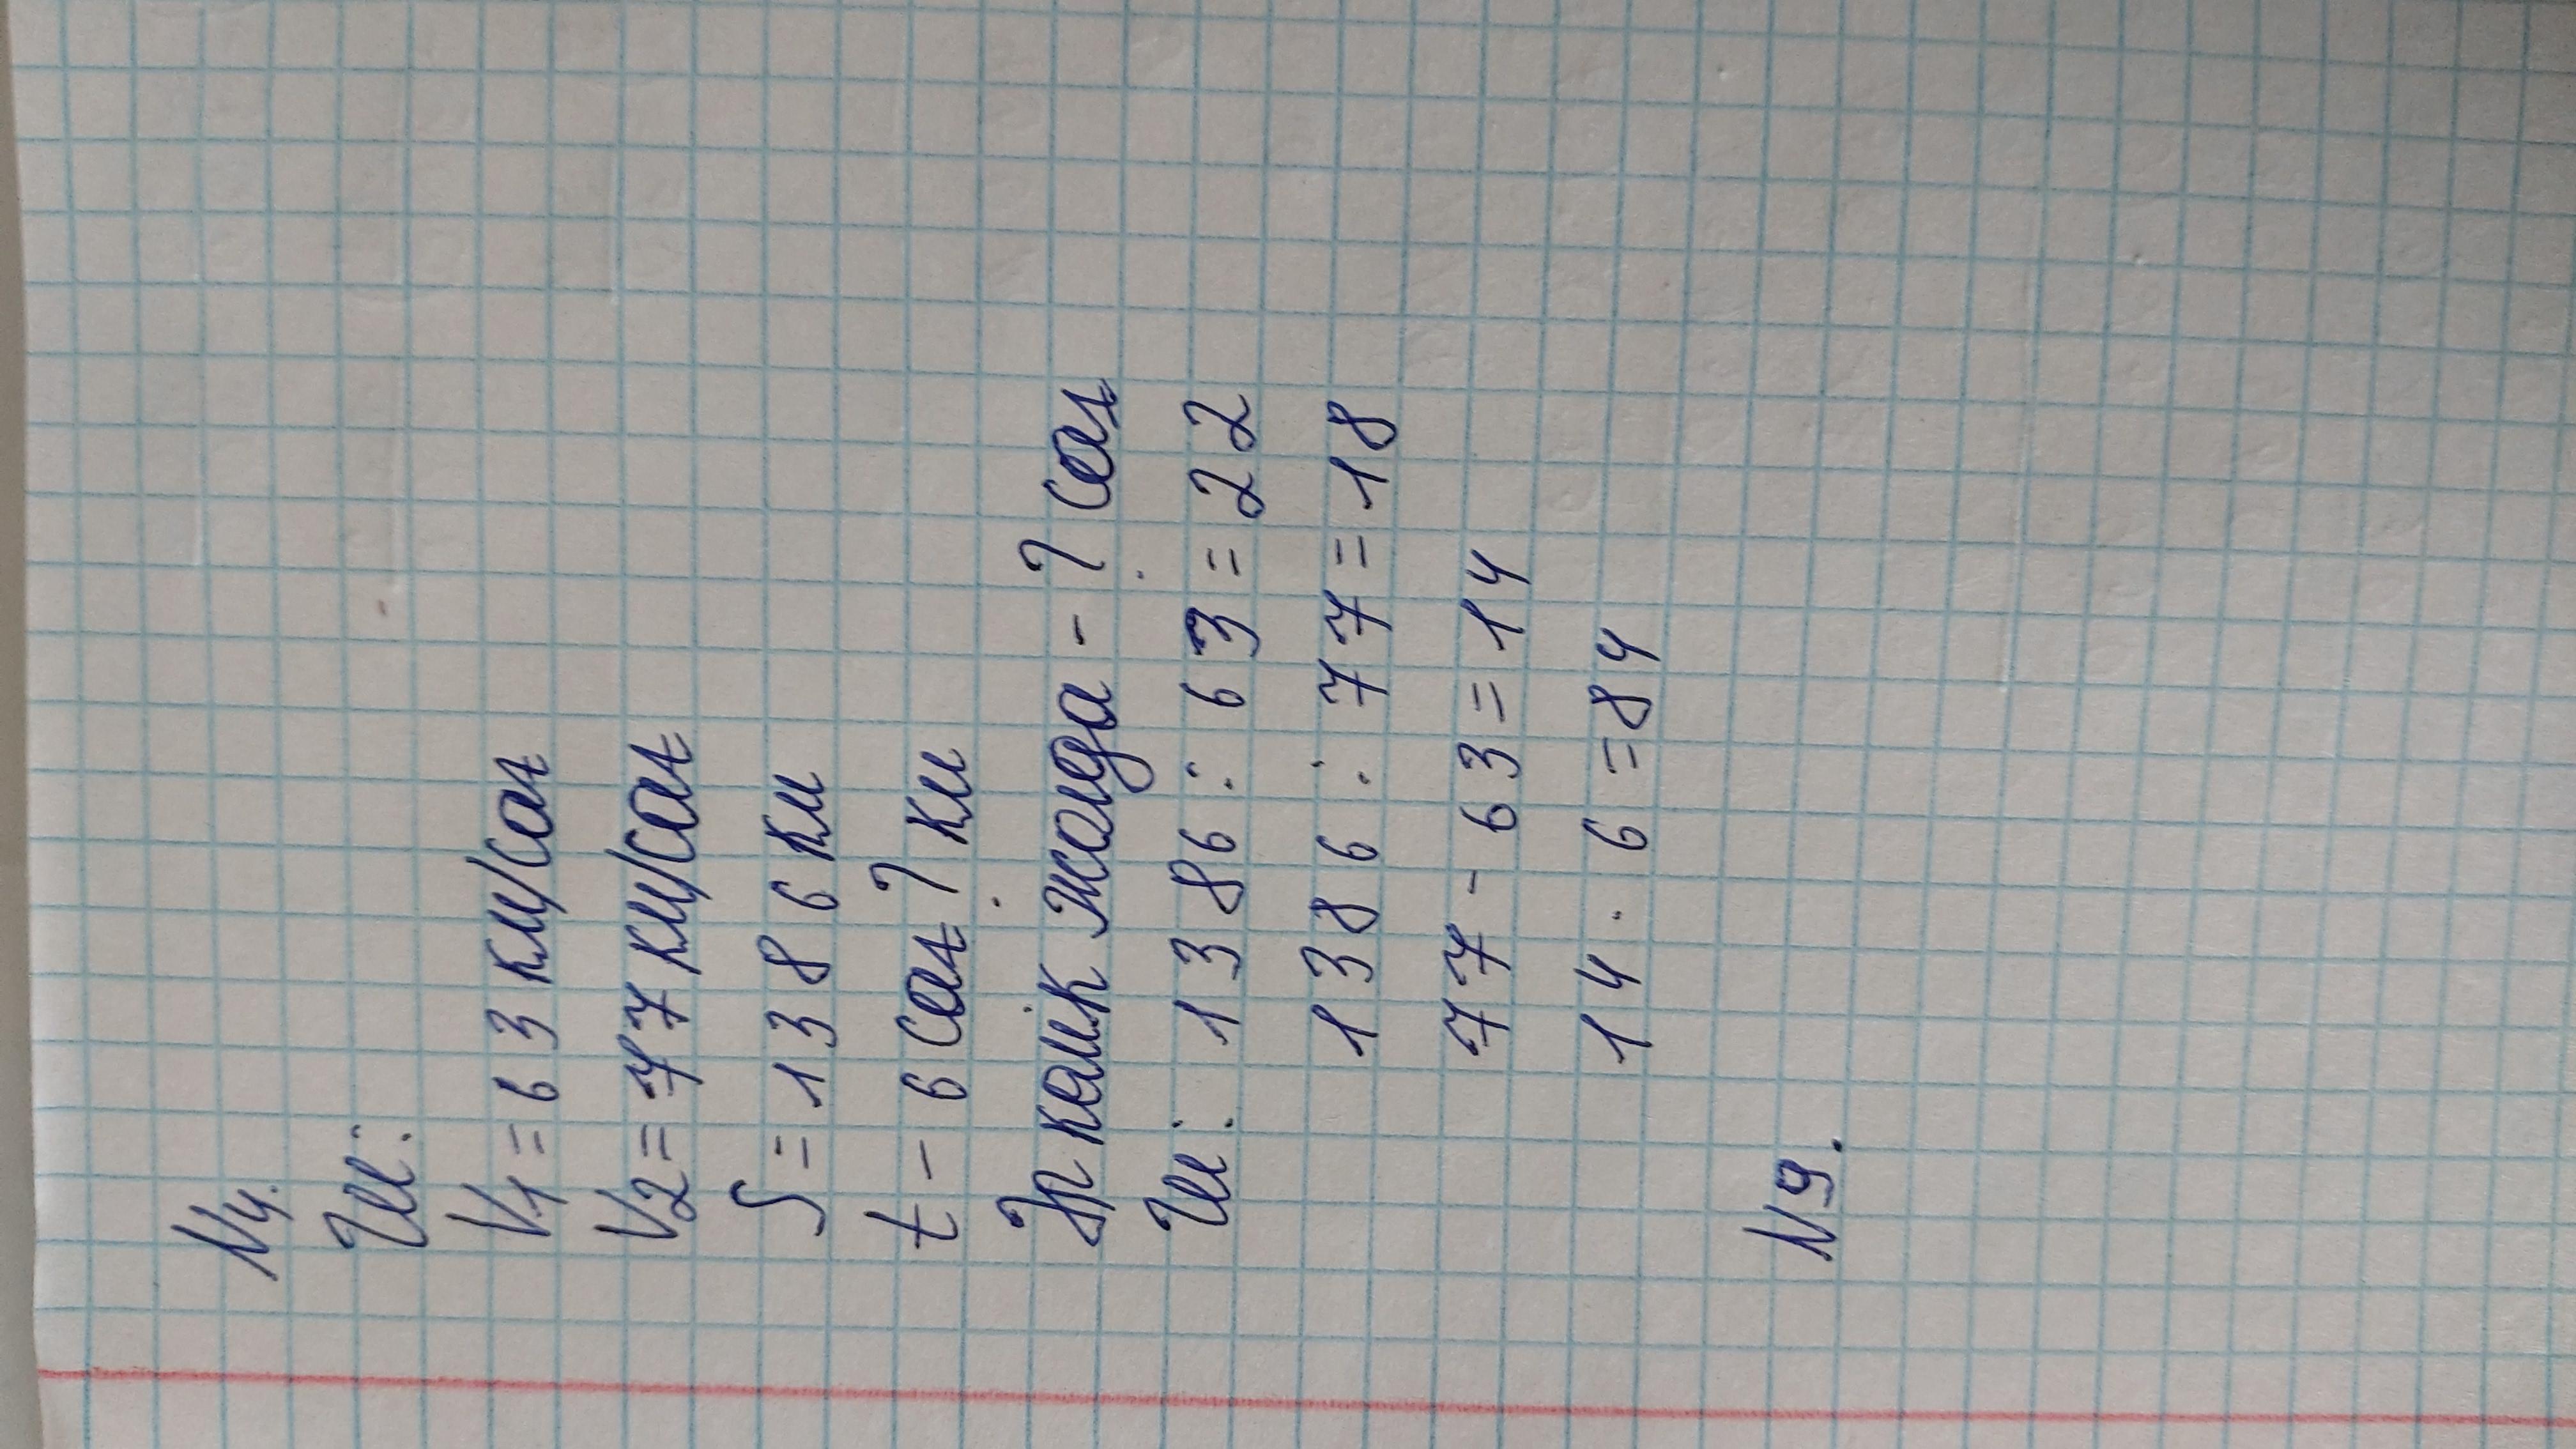 N4.
Ш:
V1 = 63 км/сағ
V2 = 77 км/сағ
S = 1386 км
t - 6 сағ ? км
Әр көлік жолда - ? сағ
Ш: 1386 : 63 = 22
1386 : 77 = 18
77 - 63 = 14
14 · 6 = 84
N9.